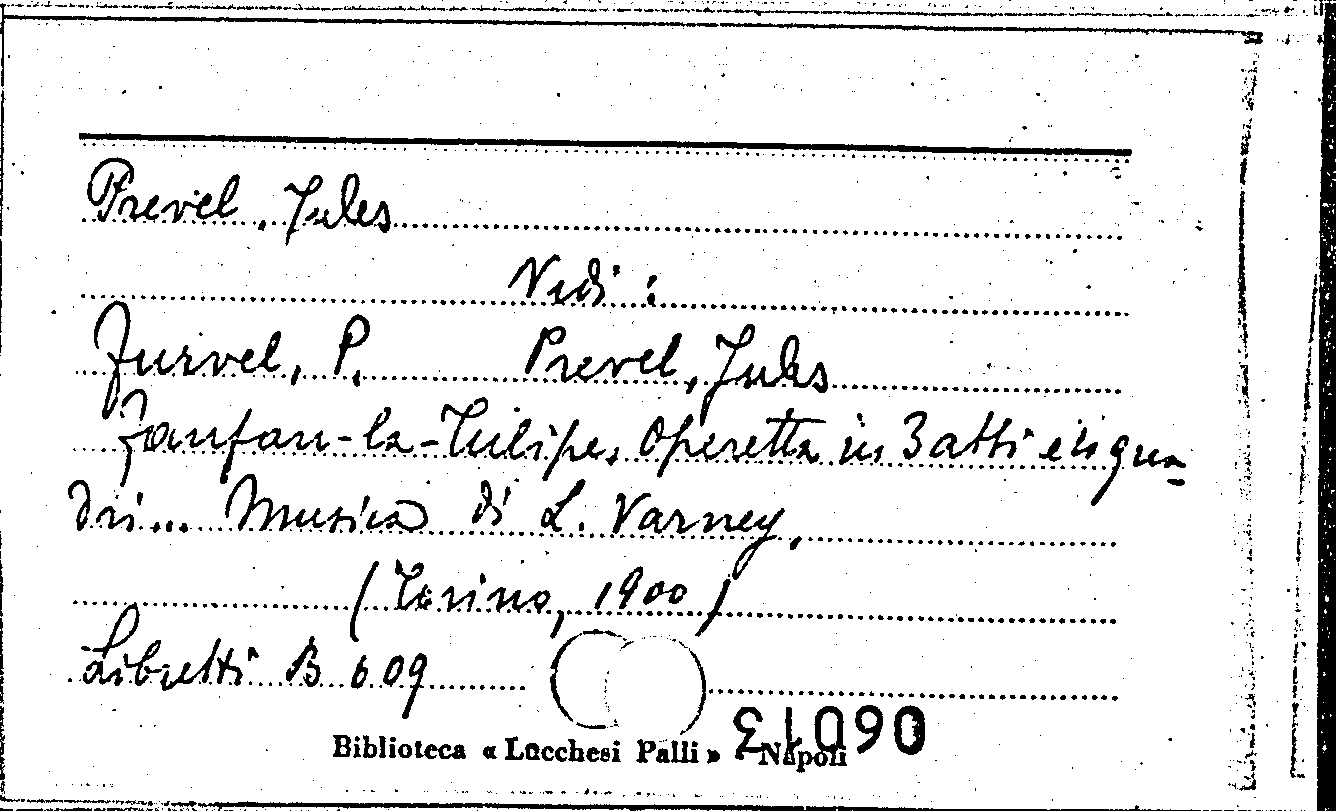 Prevel, Jules
Vedi :
Furvel, P. Prevel, Jules
Fanfan-la-Tulipe, Operetta in 3 atti e qua-
dri... Musica di L. Varney,
(Torino, 1900)
Libretti B 609
Biblioteca « Lucchesi Palli » - Napoli
06013